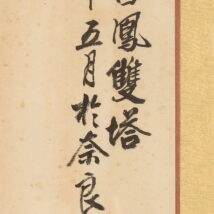 鳳雙塔
五月於奈良